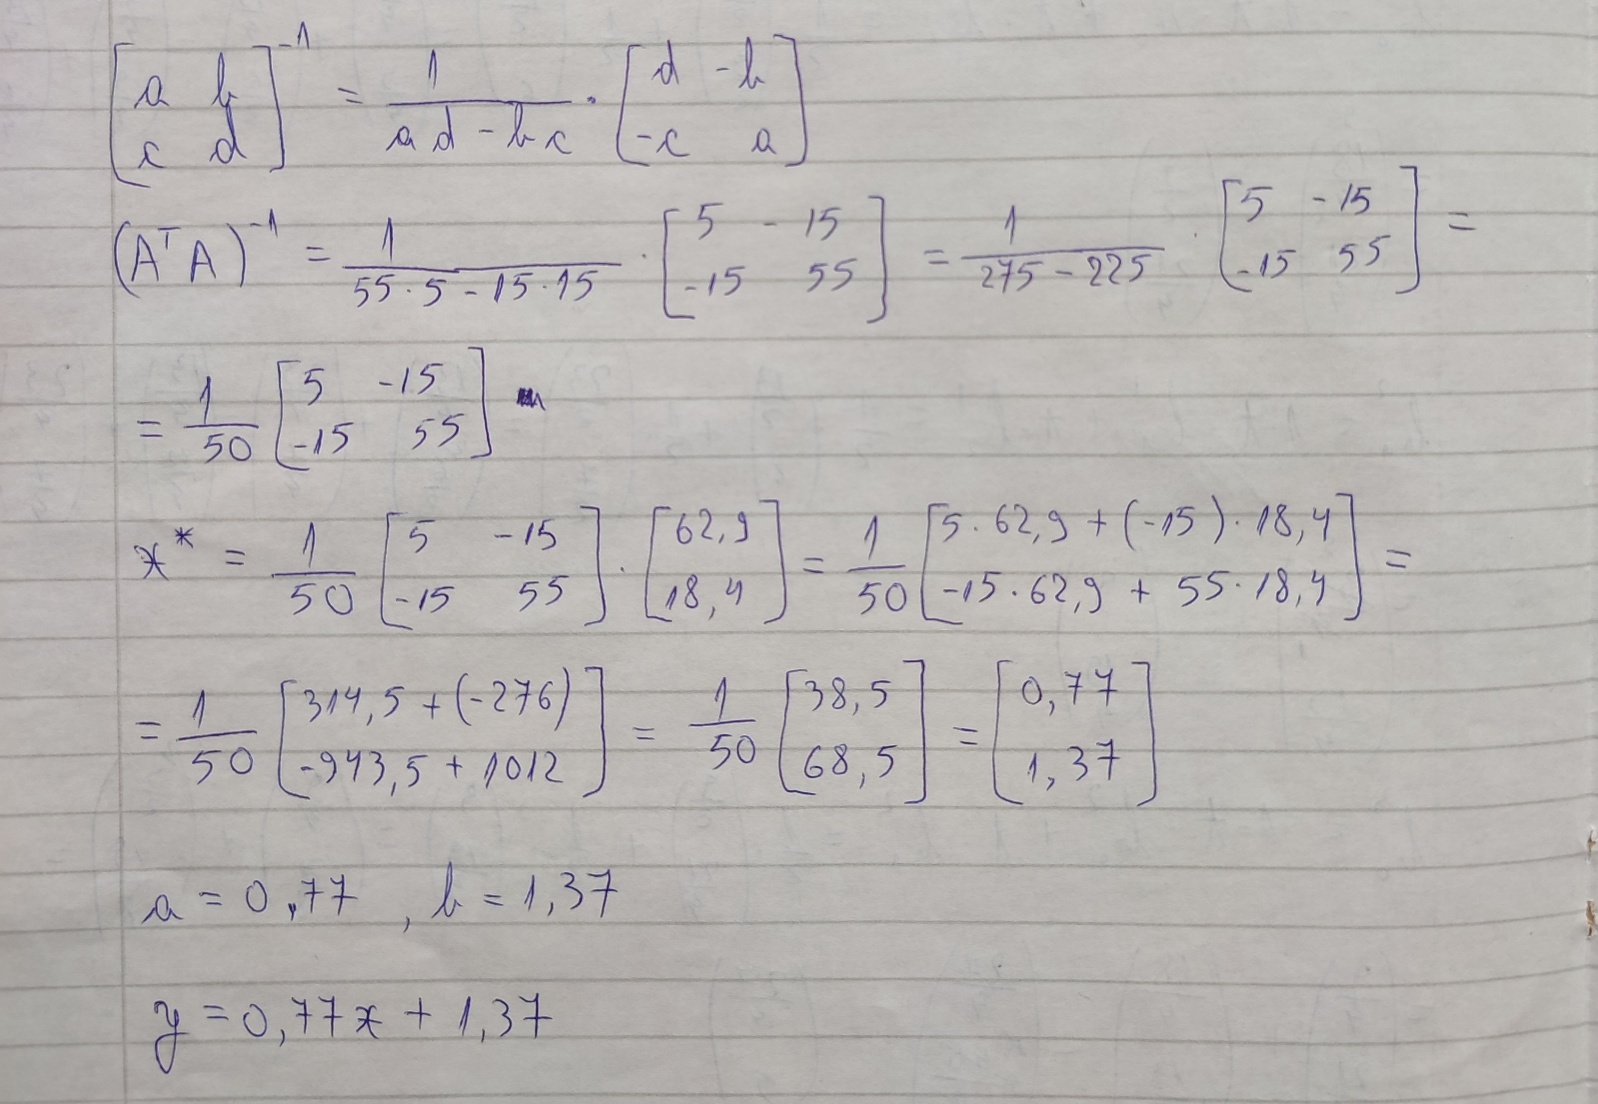 [a b; c d]^-1 = 1/(ad - bc) · [d -b; -c a]
(A^T A)^-1 = 1/(55·5 - 15·15) · [5 -15; -15 55] = 1/(275 - 225) · [5 -15; -15 55] =
= 1/50 [5 -15; -15 55]
x* = 1/50 [5 -15; -15 55] · [62,9; 18,4] = 1/50 [5·62,9 + (-15)·18,4; -15·62,9 + 55·18,4] =
= 1/50 [314,5 + (-276); -943,5 + 1012] = 1/50 [38,5; 68,5] = [0,77; 1,37]
a = 0,77 , b = 1,37
y = 0,77x + 1,37